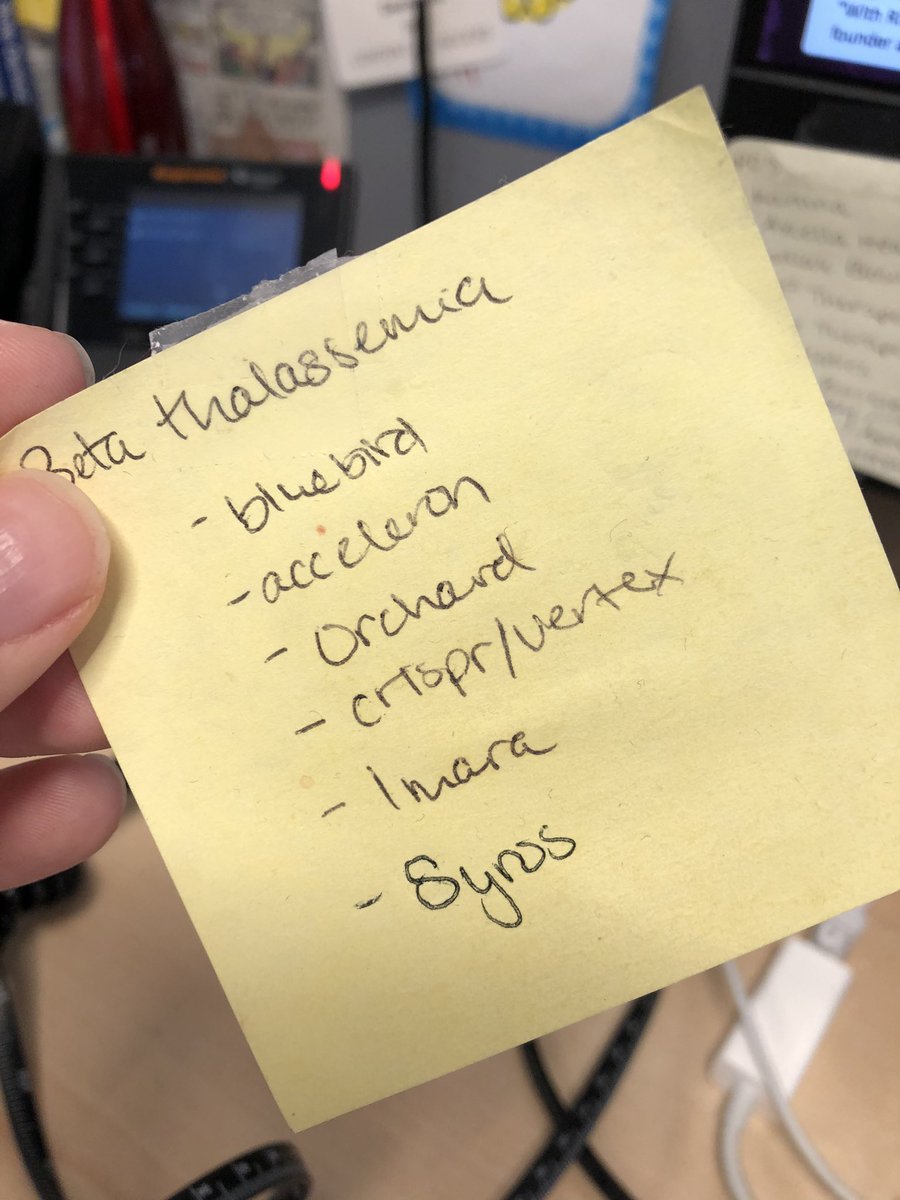 "With R
founder a
Beta thalassemia
- bluebird
- acceleron
- Orchard
- crispr/vertex
- Imara
- Syros